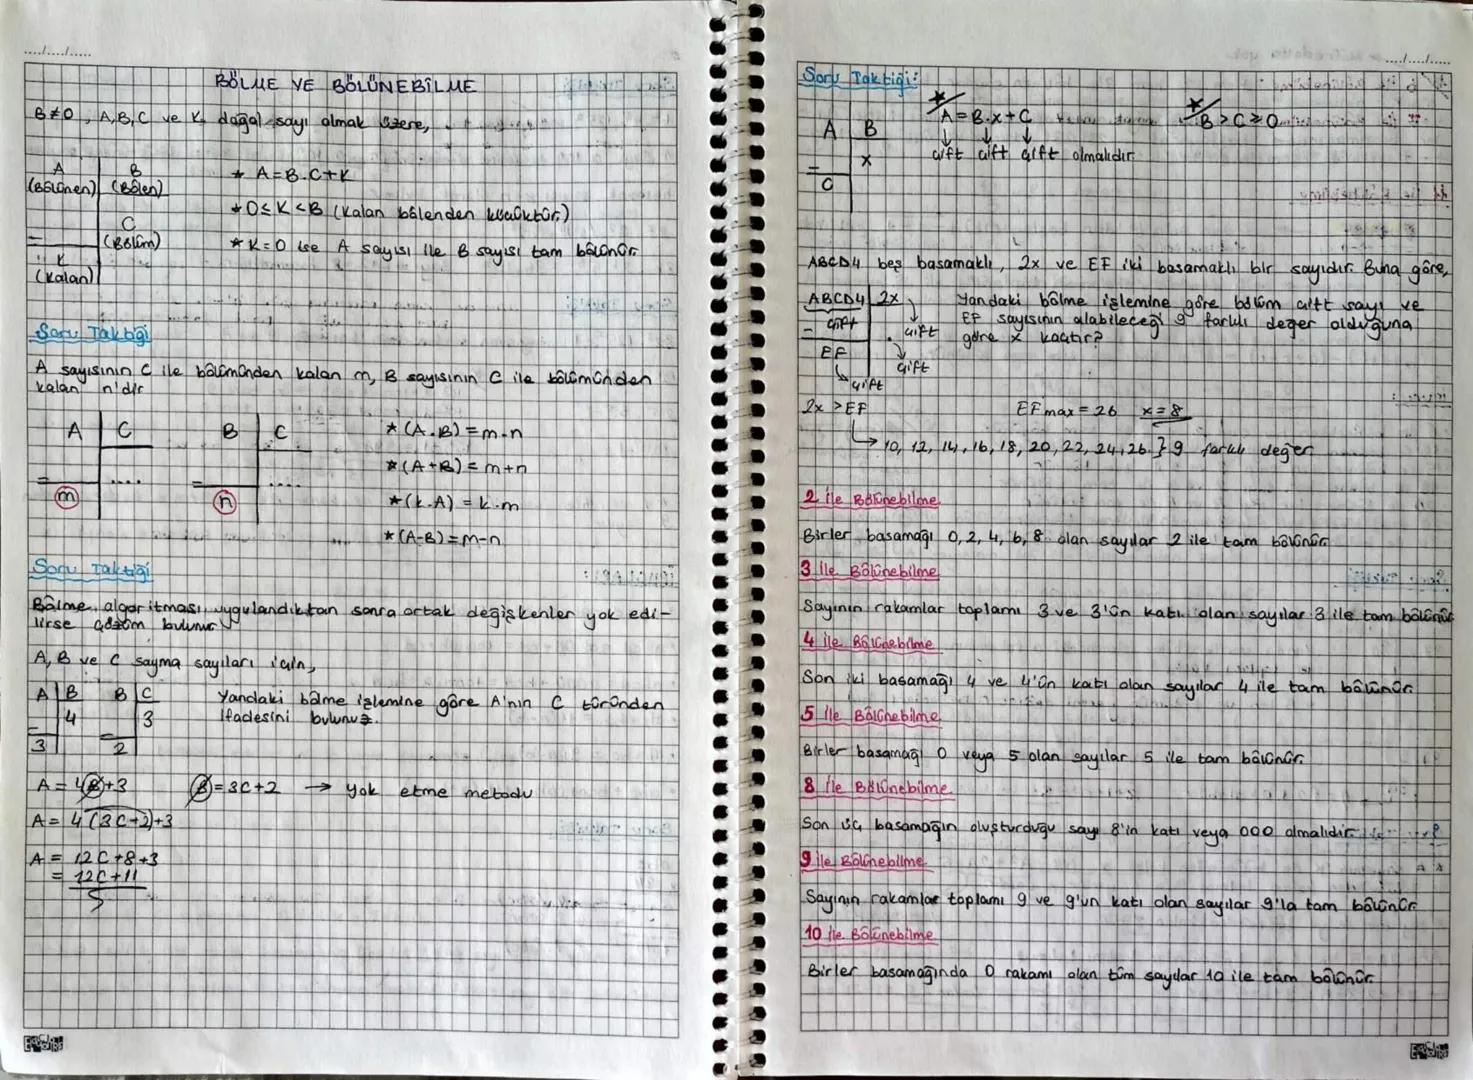 ..../..../.....
BÖLME VE BÖLÜNEBİLME
B≠0, A,B,C ve K, doğal sayı olmak üzere,
A (Bölünen) B (Bölen)
C (Bölüm)
K (Kalan)
* A=B.C+K
* 0≤K<B (Kalan bölenden küçüktür.)
* K=0 ise A sayısı ile B sayısı tam bölünür.
Soru Taktiği
A sayısının C ile bölümünden kalan m, B sayısının C ile bölümünden
kalan n'dir
A C B C
.... ....
m n
* (A.B)=m.n
* (A+B)=m+n
* (k.A)=k.m
* (A-B)=m-n
Soru Taktiği
Bölme algoritması uygulandıktan sonra ortak değişkenler yok edi-
lirse çözüm bulunur
A, B ve C sayma sayıları için,
A B B C
4 3
3 2
Yandaki bölme işlemine göre A'nın C türünden
ifadesini bulunuz.
A=4B+3 B=3C+2 → yok etme metodu
A=4(3C+2)+3
A= 12C+8+3
= 12C+11
..../..../.....
Soru Taktiği:
A B
x
C
* A=B.x+C * B>C≥0
çift çift çift olmalıdır
ABCD4 beş basamaklı, 2x ve EF iki basamaklı bir sayıdır. Buna göre,
ABCD4 2x
çift çift
çift
EF
çift
Yandaki bölme işlemine göre bölüm çift sayı ve
EF sayısının alabileceği 9 farklı değer olduğuna
göre x kaçtır?
2x >EF EFmax=26 x=8
10, 12, 14, 16, 18, 20, 22, 24, 26 } 9 farklı değer
2 ile Bölünebilme
Birler basamağı 0, 2, 4, 6, 8 olan sayılar 2 ile tam bölünür.
3 ile Bölünebilme
Sayının rakamlar toplamı 3 ve 3'ün katı olan sayılar 3 ile tam bölünür
4 ile Bölünebilme
Son iki basamağı 4 ve 4'ün katı olan sayılar 4 ile tam bölünür.
5 ile Bölünebilme
Birler basamağı 0 veya 5 olan sayılar 5 ile tam bölünür.
8 ile Bölünebilme
Son üç basamağın oluşturduğu sayı 8'in katı veya 000 olmalıdır.
9 ile Bölünebilme
Sayının rakamlar toplamı 9 ve 9'un katı olan sayılar 9'la tam bölünür
10 ile Bölünebilme
Birler basamağında 0 rakamı olan tüm sayılar 10 ile tam bölünür.